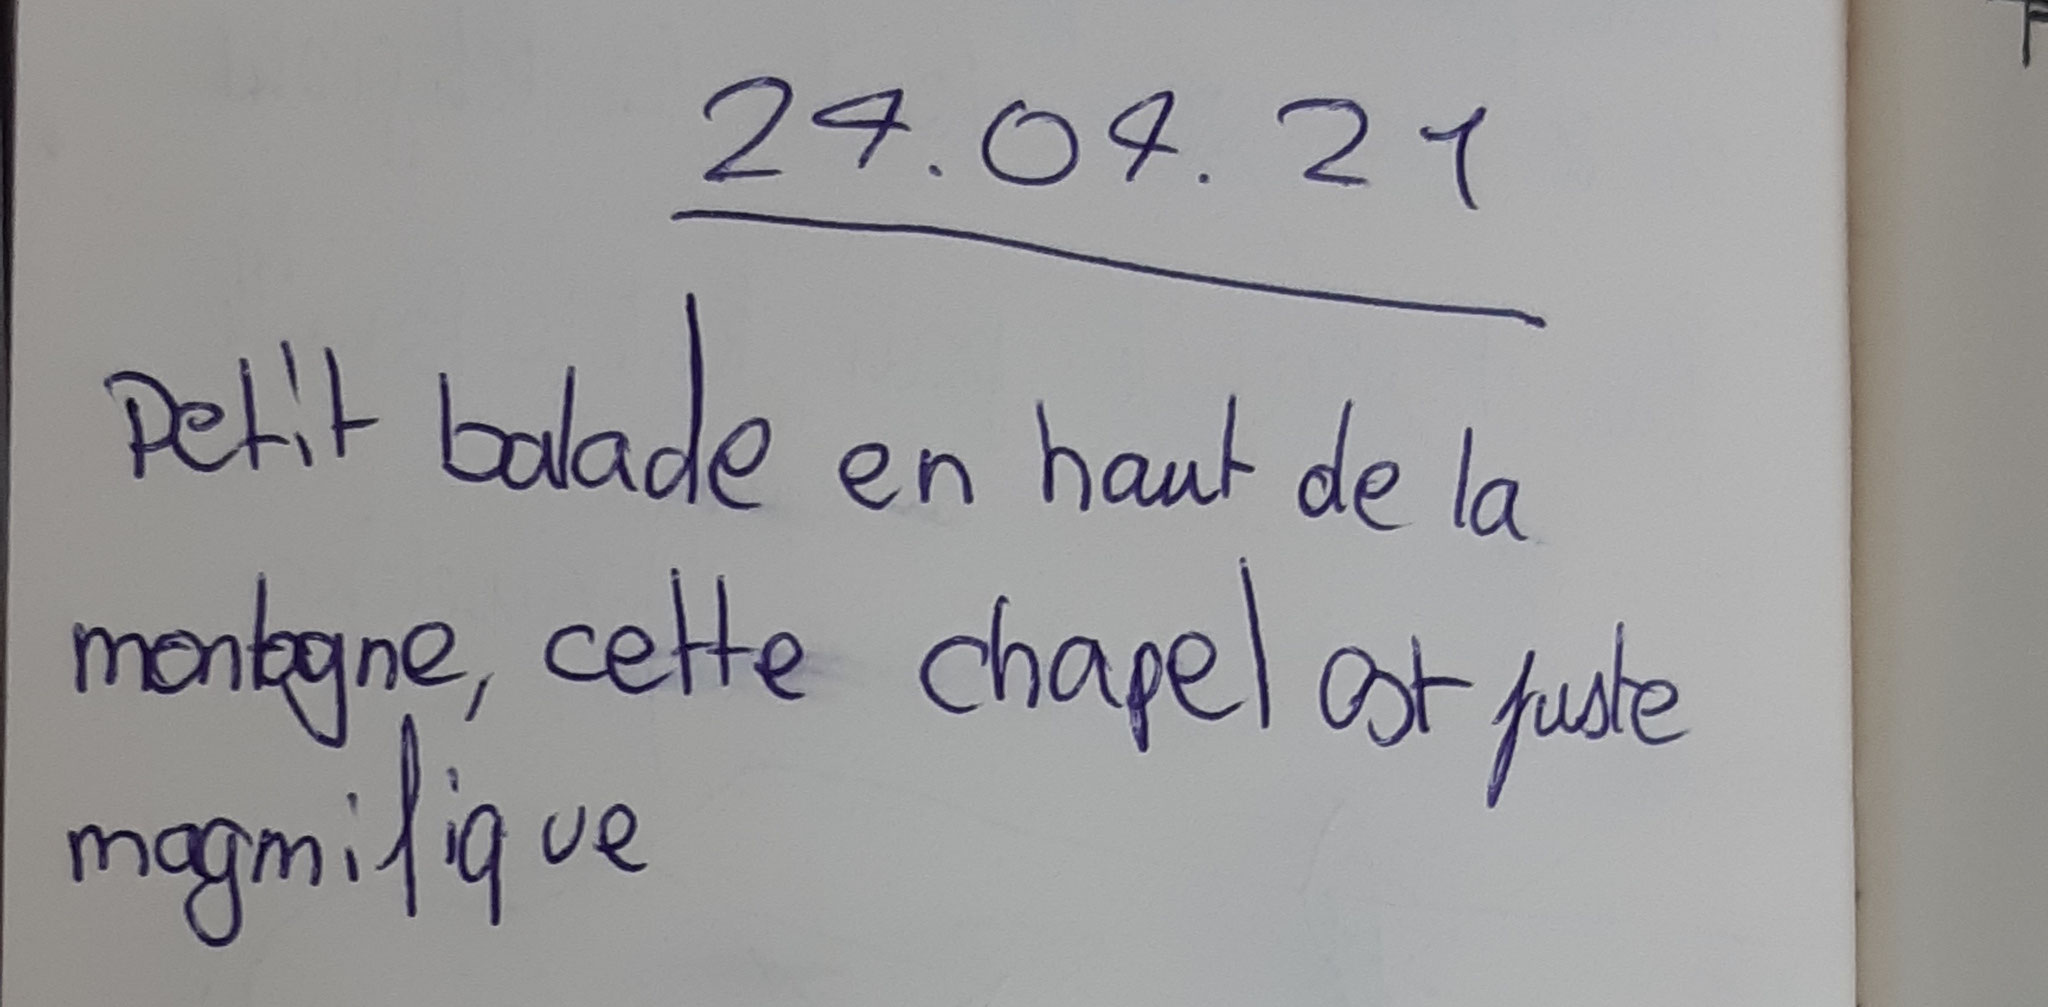 24.04.21
Petit balade en haut de la
montagne, cette chapel est juste
magnifique